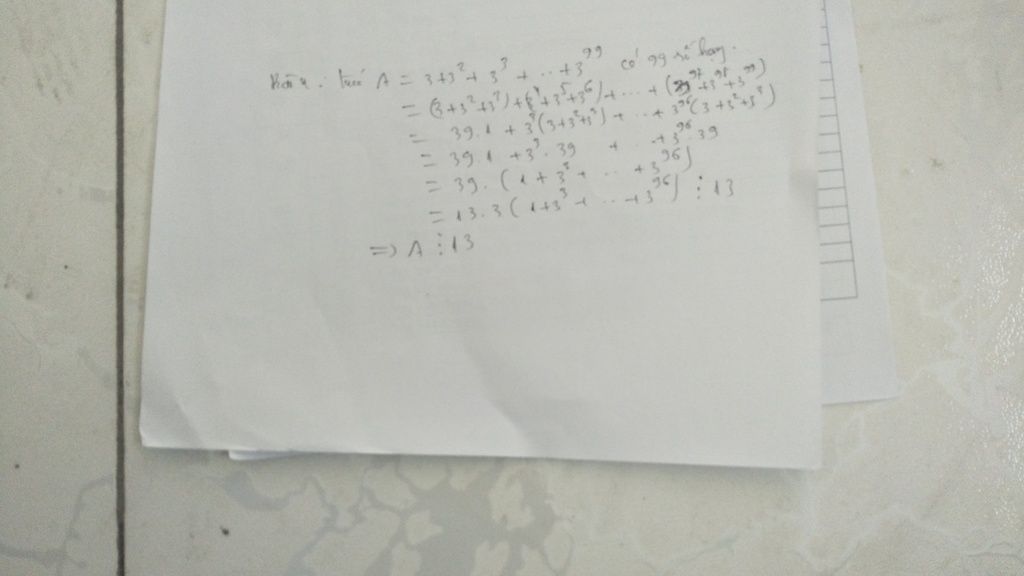 Bài 4: A = 3+3² + 3³ + ... + 3⁹⁹ có 99 số hạng.
= (3+3²+3³)+(3⁴+3⁵+3⁶)+ ... + (3⁹⁷+3⁹⁸+3⁹⁹)
= 39.1 + 3³(3+3²+3³) + ... + 3⁹⁶(3+3²+3³)
= 39.1 + 3³.39 + ... + 3⁹⁶.39
= 39.(1 + 3³ + ... + 3⁹⁶)
= 13.3(1+3³ + ... + 3⁹⁶) ⋮ 13
=> A ⋮ 13